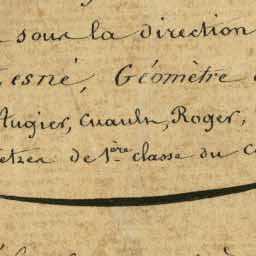 sous la direction
esné, Géomètre
Augier, Cuault, Roger,
de 1.ère classe du C